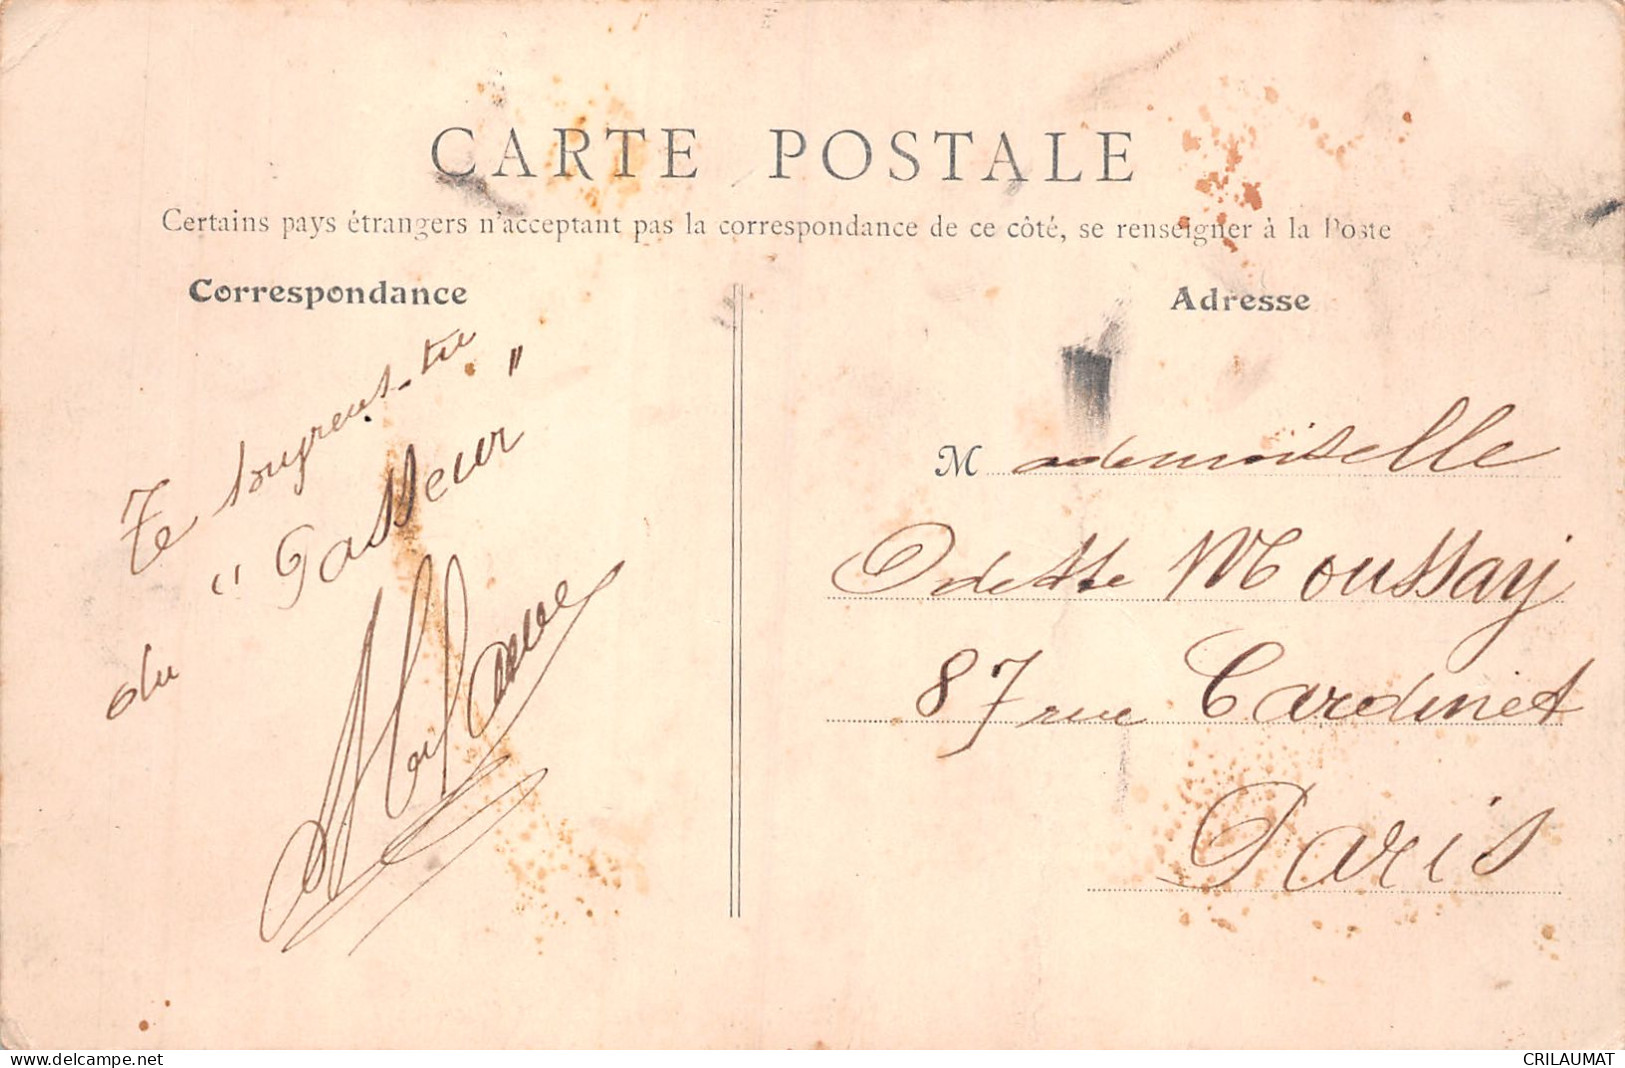 CARTE POSTALE
Certains pays étrangers n'acceptant pas la correspondance de ce côté, se renseigner à la Poste
Correspondance
Te
du "Passeur"
Adresse
Mademoiselle
Odette Moussay
87 rue Cardinet
Paris
www.delcampe.net
CRILAUMAT